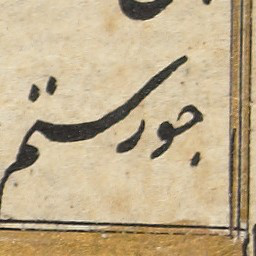 جور ستم